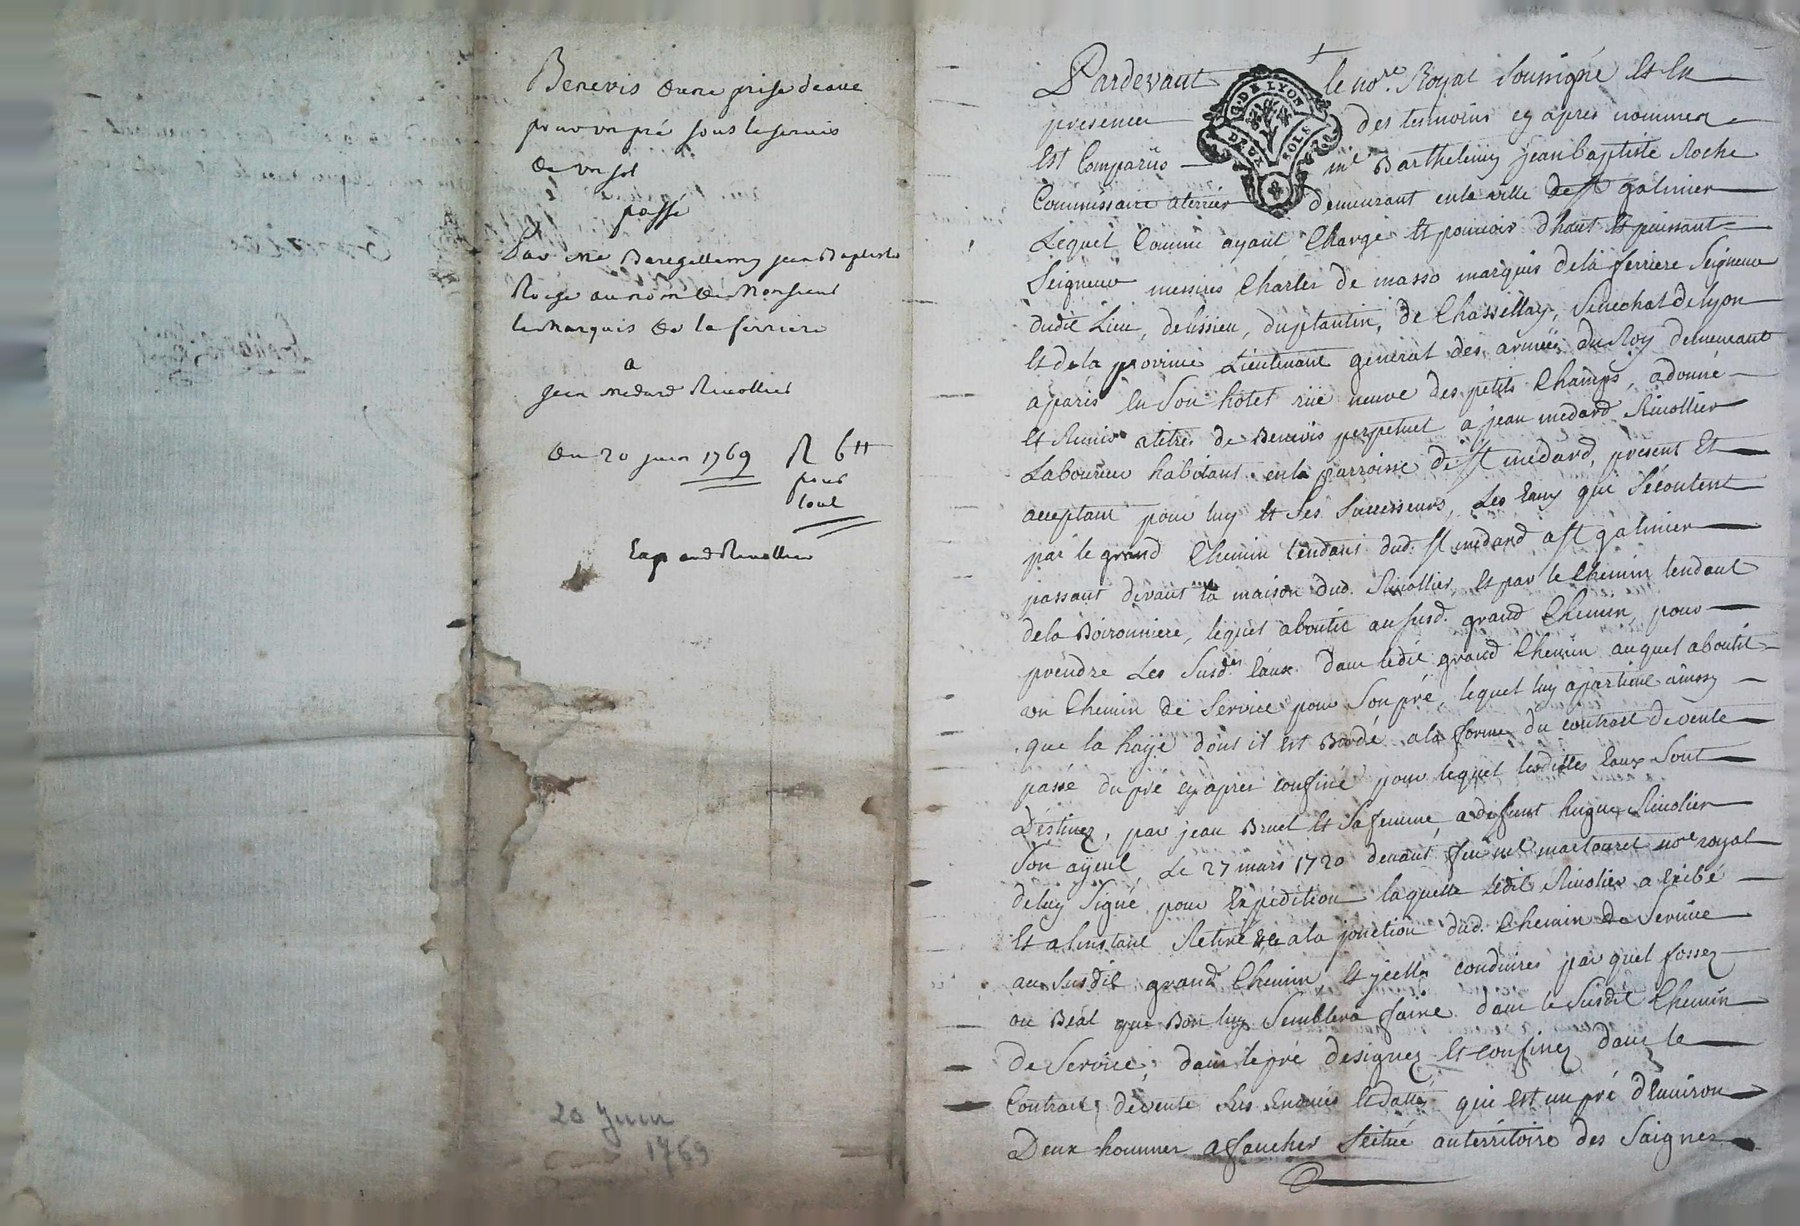 Benevis dune prise deaue
pour un pré sous le servis
de un sol
passé
Par Me Bartellemy jean Baptiste
Roche au nom de Monsieur
le Marquis de la ferriere
a
jean medard Rivollier
du 20 juin 1769
R 6tt
pour
tout
Exp and Rivollier
20 Juin
1769
G. DE LYON
DEUX SOLS
Pardevant le nore. Royal soussigné et en
presence des temoins cy apres nommez
est comparüs me Barthelemy jean baptiste Roche
Commissaire aterrier demeurant en la ville de st galmier
Lequel comme ayant charge et pouvoir d'haut et puissant
Seigneur messire Charles de masso marquis de la ferriere Seigneur
dudit Lieu, de lissieu, du plantin, de Chassellay, Senechal de lyon
et de la province Lieutenant general des armées du Roy demeurant
aparis en son hotel rüe neuve des petits Champs, a donné
et Remis atitre de Benevis perpetuel a jean medard Rivollier
Laboureur habitant en la parroisse de st medard, present et
acceptant pour luy et ses successeurs, Les Eaux qui s'écoulent
par le grand Chemin tendant dud. st medard a st galmier
passant devant la maison dud. Rivollier et par le Chemin tendant
de la Boironniere, lequel aboutit au susd. grand Chemin, pour
prendre Les susdes Eaux dans ledit grand Chemin auquel aboutit
un Chemin de Service pour son pré, lequel luy apartient ainsy
que la haye dont il est Bordé a la forme du contrat de vente
passé du pré cy apres confiné pour lequel lesdittes Eaux sont
Destinez, par jean Bruel et sa femme, a defunt hugue Rivolier
son ayeul, Le 27 mars 1720 devant feu me martouret nore royal
de luy signé pour Expedition laquelle ledit Rivolier a Exibé
et alinstant Retiré a la jonction dud. Chemin de Service
au susdit grand Chemin et ycelles conduires par quel fossez
ou Béal que Bon luy semblera faire dans le susdit Chemin
de Service, dans le pré designez et confinez dans le
Contrat de vente sus Enoncé et datté qui est un pré d'Environ
Deux hommes a faucher scitué au territoire des Saignes